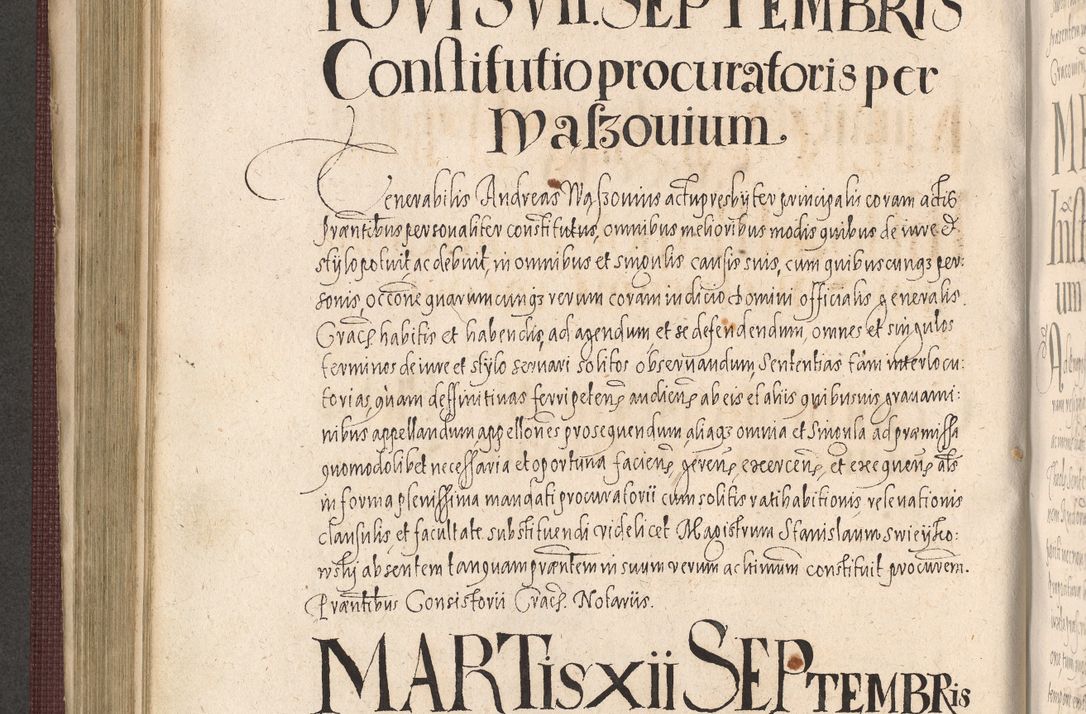 IOVIS VII. SEPTEMBRIS
Constitutio procuratoris per
Waszouium.
Venerabilis Andreas Waszouius actu presbyter principalis coram actis
præntibus personaliter constitutus, omnibus melioribus modis quibus de iure et
stylo potuit, ac debuit, in omnibus et singulis causis suis, cum quibuscunqȝ per:
sonis, occone quarumcunqȝ rerum coram iudicio domini officialis generalis
Cracę habitis et habendis, ad agendum et se defendendum, omnes et singulos
terminos de iure et stylo seruari solitos obseruandum, Sententias tam interlocu:
torias, quam deffinitiuas ferri peteñ audieñ ab eis et aliis quibusuis grauami:
nibus appellandum appellones prosequendum, aliaqȝ omnia et Singula ad præmissa
quomodolibet necessaria et oportuna facieñ, gereñ, exerceñ, et exequeñ als
in forma plenissima mandati procuratorii cum solitis ratihabitionis releuationis
clausulis, et facultate substituendi videlicet Magistrum Stanislaum swieyko:
wskÿ absentem tanquam præntem in suum verum ac ltimum constituit procurem.
Præntibus Consistorii Cracę. Notariis.
MARTIS XII SEPTEMBRIS